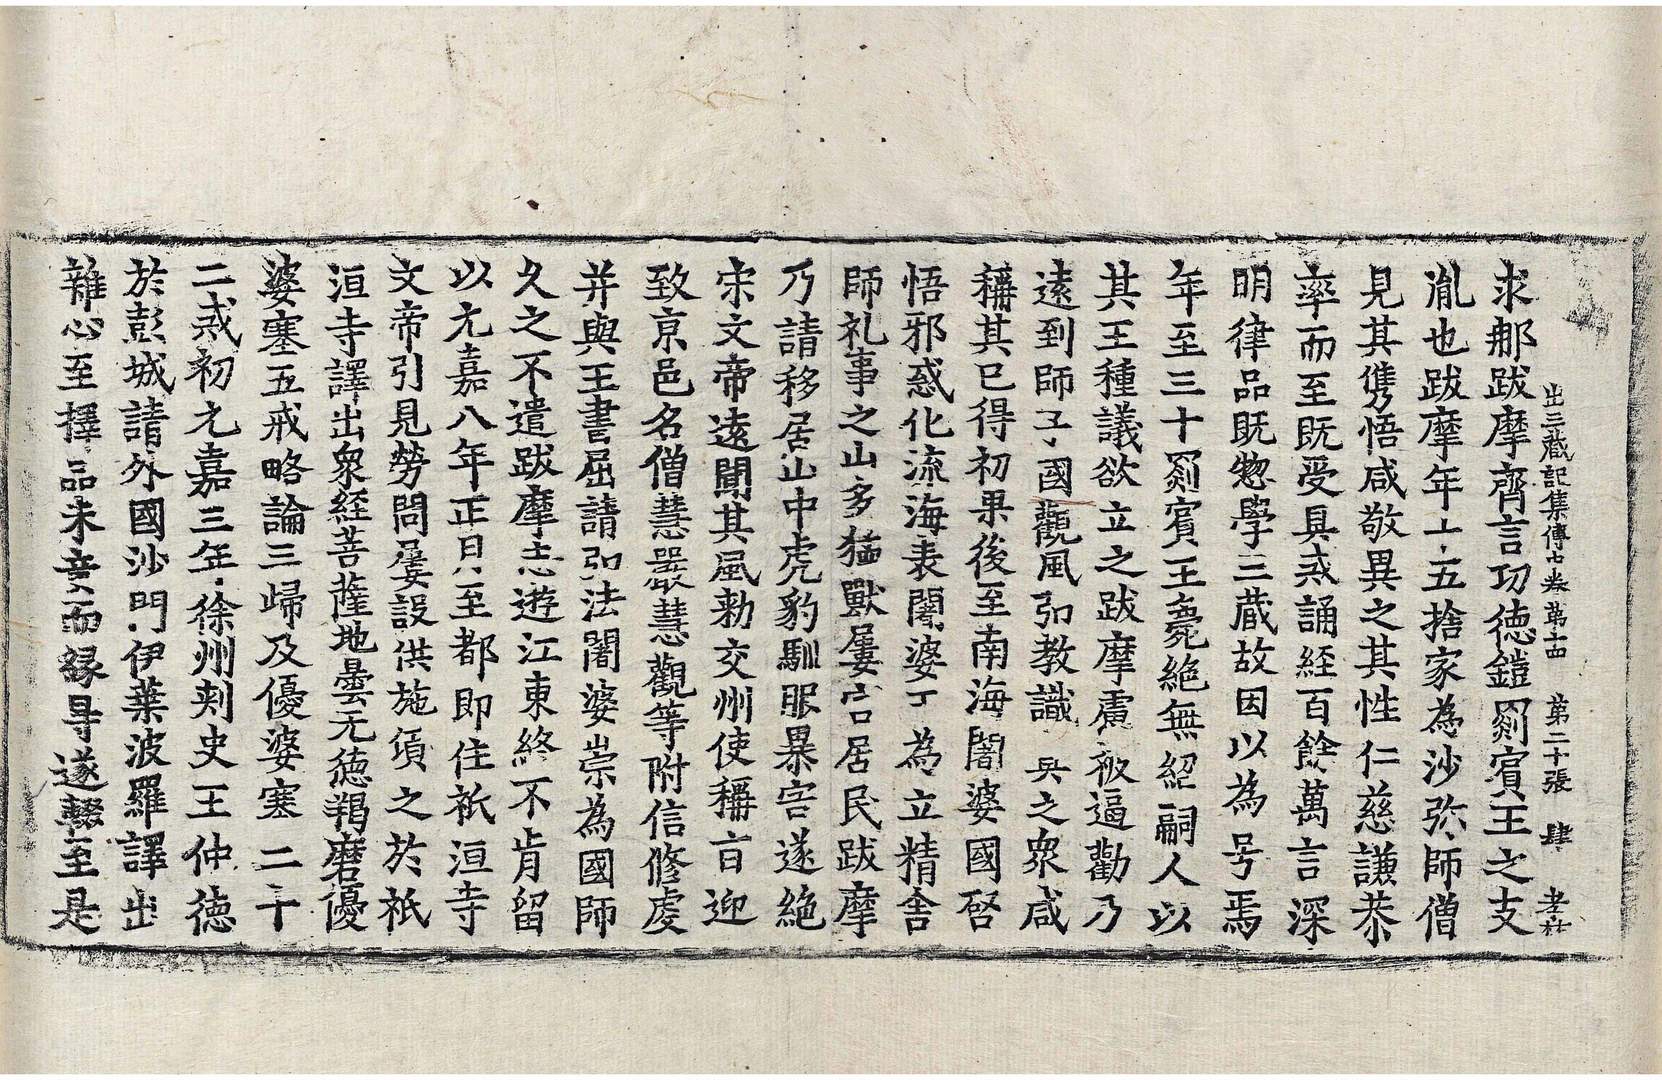 出三藏記集傳中卷第十四 第二十張 肆 孝柱
求那跋摩齊言功德鎧罽賓王之支
胤也跋摩年十五捨家為沙弥師僧
見其儁悟咸敬異之其性仁慈謙恭
率而至既受具戒誦経百餘萬言深
明律品既惣學三蔵故因以為号焉
年至三十罽賓王薨絶無紹嗣人以
其王種議欲立之跋摩慮被逼勸乃
遠到師子國觀風弘教識之衆咸
稱其已得初果後至南海闍婆國啓
悟邪惑化流海表闍婆為立精舎
師礼事之山多猛獸屢害居民跋摩
乃請移居山中虎豹馴服暴害遂絶
宋文帝遠聞其風勅交州使稱旨迎
致京邑名僧慧嚴慧觀等附信修虔
并與王書屈請弘法闍婆崇為國師
久之不遣跋摩志遊江東終不肯留
以元嘉八年正月至都即住祇洹寺
文帝引見勞問屢設供施頃之於祇
洹寺譯出衆経菩薩地曇无德羯磨優
婆塞五戒略論三歸及優婆塞二十
二戒初元嘉三年徐州刾史王仲德
於彭城請外國沙門伊葉波羅譯出
雜心至擇品未竟而縁㝵遂輟至是